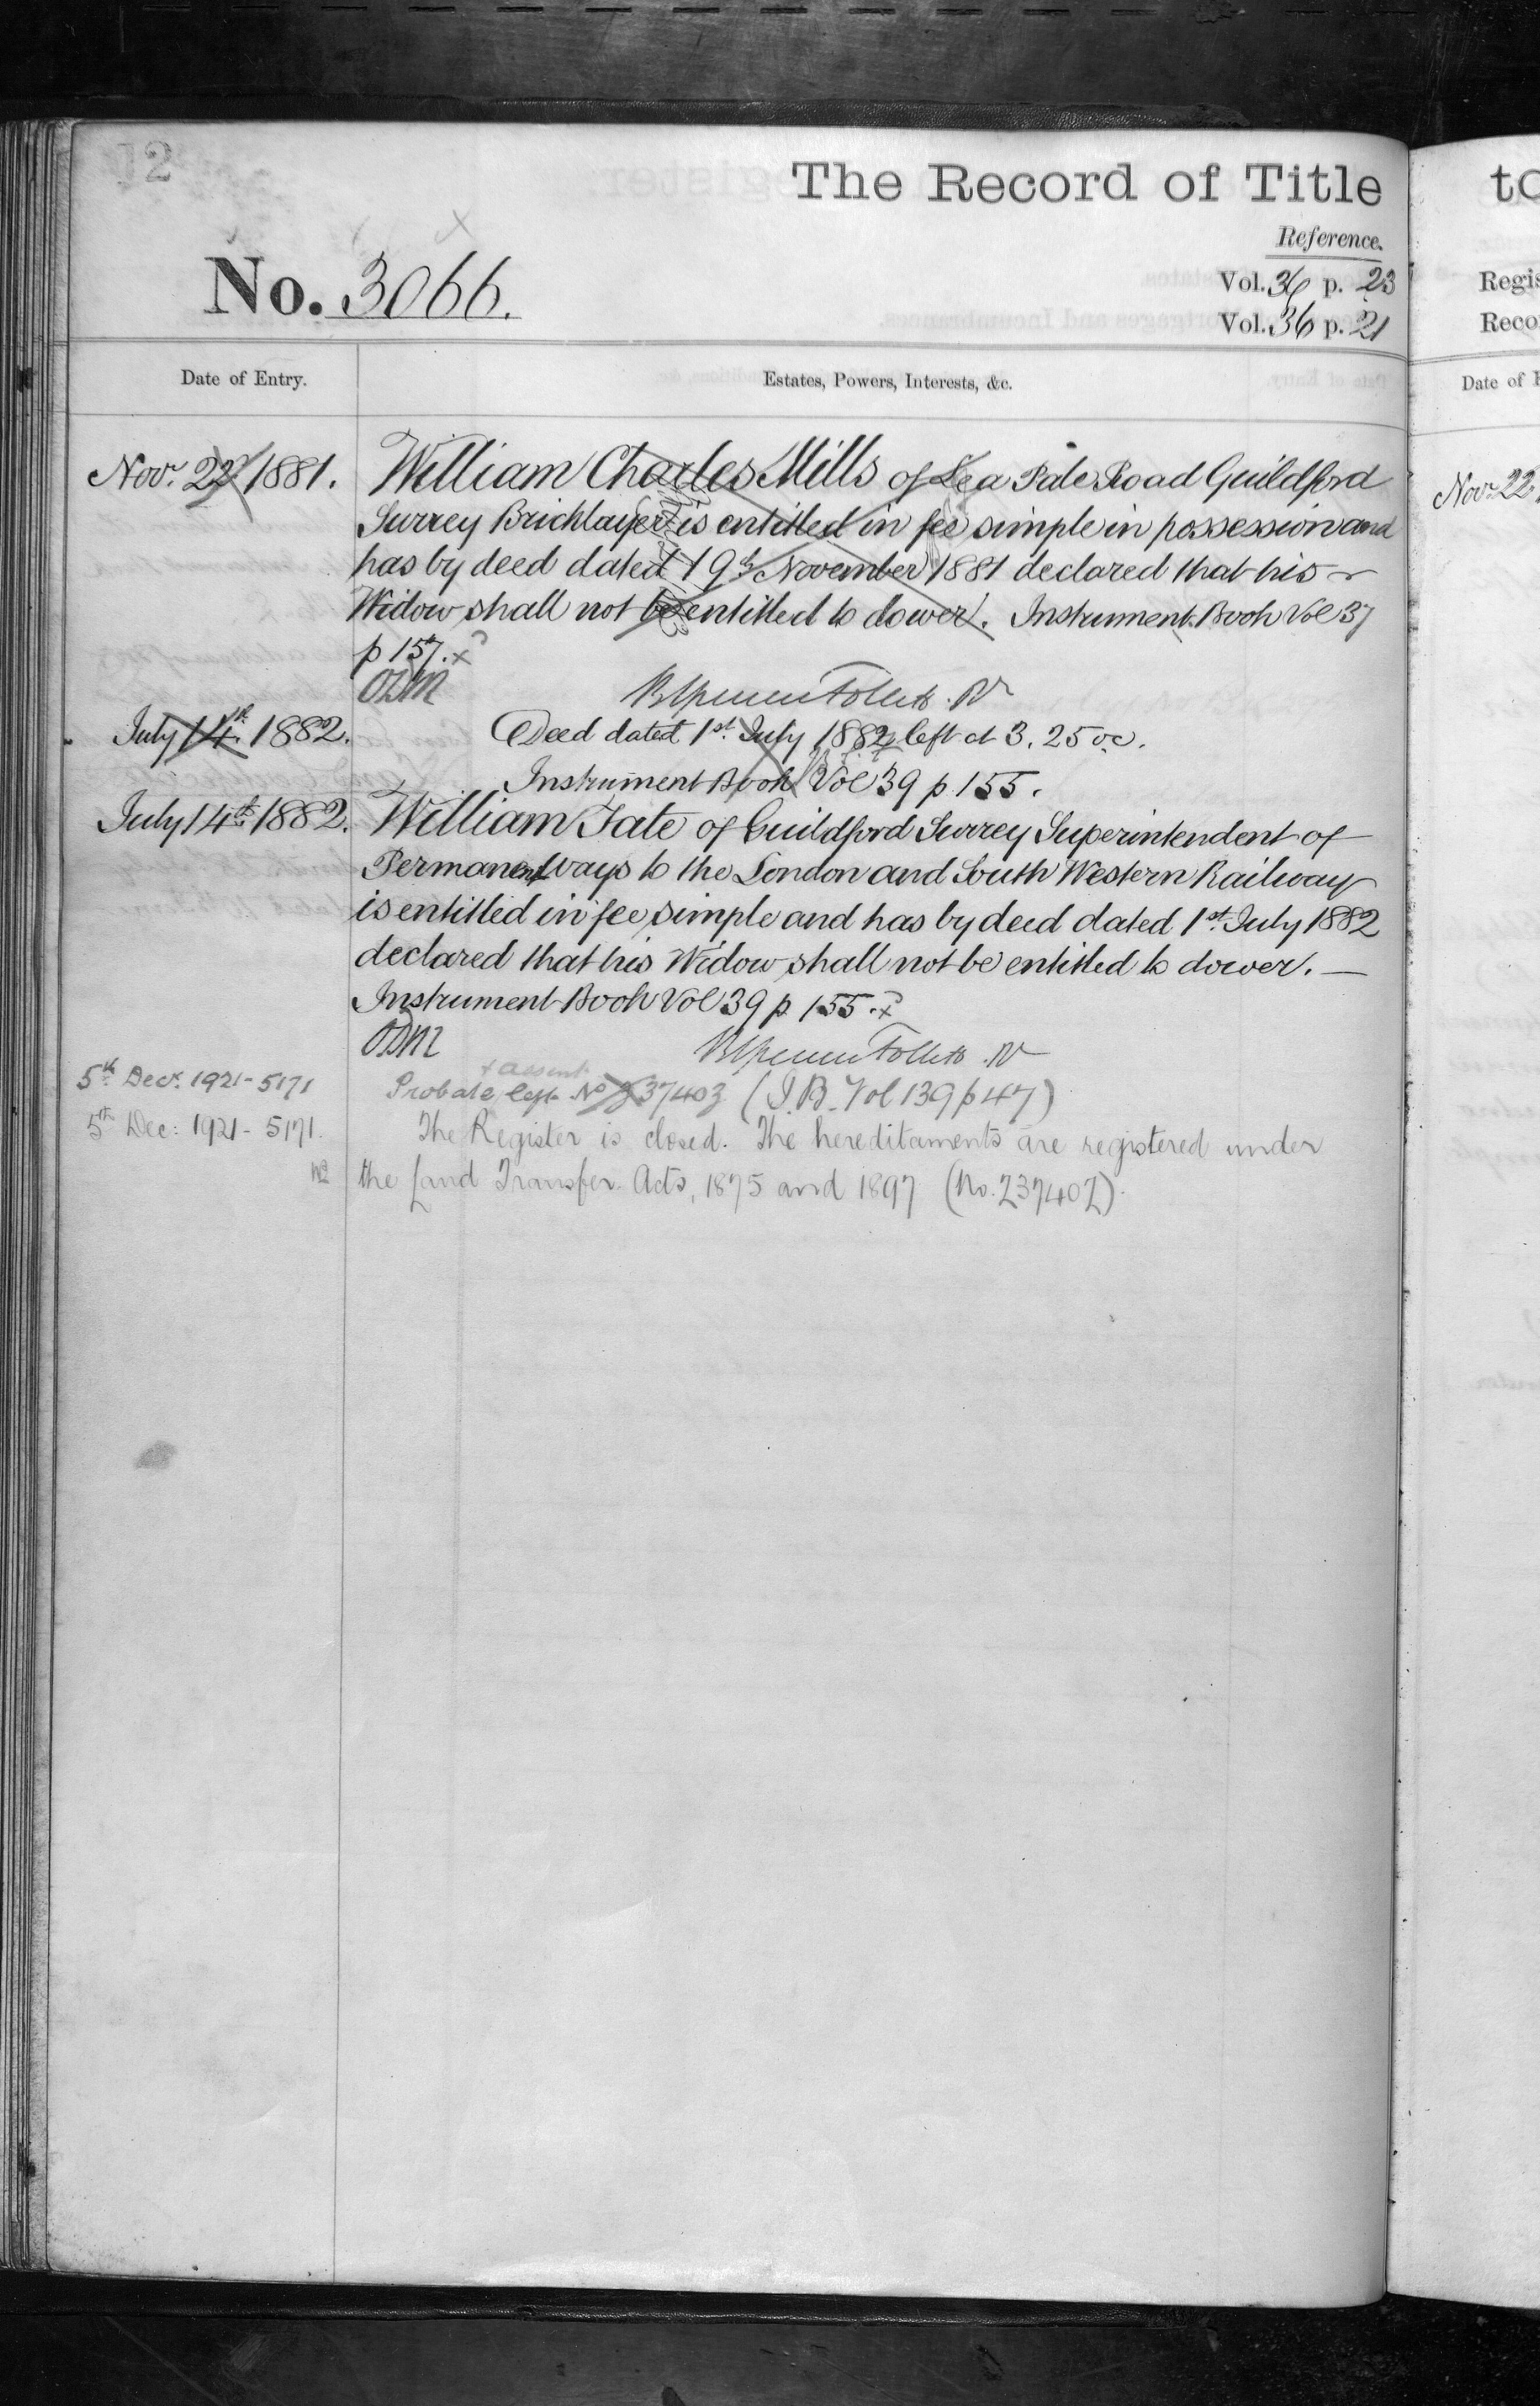 12
The Record of Title
Reference.
No. 3066.
Vol. 36 p. 23
Vol. 36 p. 21
Date of Entry.
Estates, Powers, Interests, &c.
Nov. 22 1881.
William Charles Mills of Lea Pale Road Guildford
Surrey Bricklayer is entitled in fee simple in possession and
has by deed dated 19th November 1881 declared that his
Widow shall not be entitled to dower. Instrument Book Vol 37
p 157.
ODM
July 14th 1882.
Deed dated 1st July 1882 left at 3.25 oc.
Instrument Book Vol 39 p 155.
July 14th 1882.
William Tate of Guildford Surrey Superintendent of
Permanent ways to the London and South Western Railway
is entitled in fee simple and has by deed dated 1st July 1882
declared that his Widow shall not be entitled to dower. —
Instrument Book Vol 39 p 155.
ODM
5th Decr. 1921 - 5171
+ assent
Probate left No 237403 (I.B. Vol 139 p 47)
5th Dec: 1921 - 5171.
The Register is closed. The hereditaments are registered under
the Land Transfer Acts, 1875 and 1897 (No. 237402).
to
Regis
Reco
Date of E
Nov 22